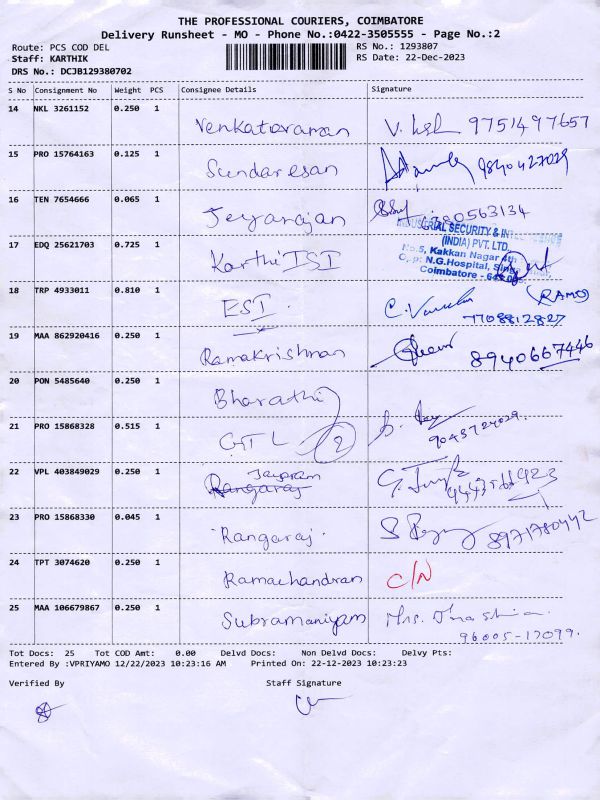 THE PROFESSIONAL COURIERS, COIMBATORE
Delivery Runsheet - MO - Phone No.:0422-3505555 - Page No.:2
Route: PCS COD DEL RS No.: 1293807
Staff: KARTHIK RS Date: 22-Dec-2023
DRS No.: DCJB129380702
S No Consignment No Weight PCS Consignee Details Signature
14 NKL 3261152 0.250 1 Venkataraman 9751497657
15 PRO 15764163 0.125 1 Sundaresan 9840427029
16 TEN 7654666 0.065 1 Jeyarajan
17 EDQ 25621703 0.725 1 Karthi ISI
INDUSTRIAL SECURITY &
(INDIA) PVT. LTD.
No.5, Kakkan Nagar 4th
Opp: N.G.Hospital,
Coimbatore -
18 TRP 4933011 0.810 1 ESI RAMO
7708812827
19 MAA 862920416 0.250 1 Ramakrishnan 8940667446
20 PON 5485640 0.250 1 Bharathi
21 PRO 15868328 0.515 1 GTL 2
22 VPL 403849029 0.250 1 Jayaram
Rangaraj
23 PRO 15868330 0.045 1 Rangaraj 8971780442
24 TPT 3074620 0.250 1 Ramachandran C/N
25 MAA 106679867 0.250 1 Subramaniyam Mrs.
96005-17099.
Tot Docs: 25 Tot COD Amt: 0.00 Delvd Docs: Non Delvd Docs: Delvy Pts:
Entered By :VPRIYAMO 12/22/2023 10:23:16 AM Printed On: 22-12-2023 10:23:23
Verified By Staff Signature